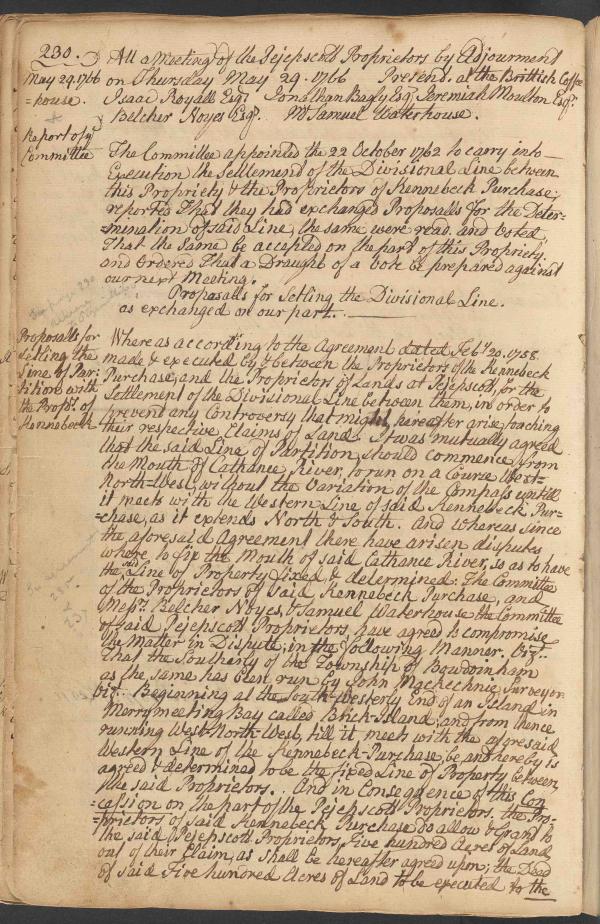 230.
At a Meeting of the Pejepscott Proprietors by Adjourment
May 29. 1766 on Thursday May 29. 1766 Present. at the Brittich Coffee
=house. Isaac Royall Esqr. Jonathan Bagly Esqr. Jeremiah Moulton Esqr.
Belcher Noyes Esqr. Mr. Samuel Waterhouse.
Report of ye
Committee
The Committee appointed the 22 October 1762 to carry into
Execution the Settlement of the Divisional Line between
this Propriety & the Proprietors of Kennebeck Purchase;
reported That they had exchanged Proposalls for the Deter=
=mination of said Line, the same were read. and Voted,
That the Same be accepted on the part of this Propriety.
and Ordered That a Draught of a Vote be prepared against
our next Meeting.
Proposalls for Setling the Divisional Line.
as exchanged on our part.
Proposalls for
Setling the
Line of Par=
=tition with
the Propts. of
Kennebeck
Whereas according to the Agreement dated Feby. 20. 1758.
made & executed by & between the Proprietors of the Kennebeck
Purchase, and the Proprietors of Lands at Pejepscott, for the
Settlement of the Divisional Line between them, in order to
prevent any Controversy that might hereafter arise, touching
their respective Claims of Land. It was mutually agreed
that the said Line of Partition, should commence from
the Mouth of Cathance River, to run on a Course West=
North=West, without the Variation of the Compass untill
it meets with the Western Line of said Kennebeck Pur=
=chase, as it extends North & South. And whereas since
the aforesaid Agreement there have arisen disputes
where to fix the Mouth of said Cathance River, so as to have
the said Line of Property fixed & determined. The Committee
of the Proprietors of said Kennebeck Purchase, and
Messrs. Belcher Noyes, & Samuel Waterhouse the Committee
of said Pejepscott Proprietors, have agreed to compromise
the Matter in Dispute, in the following Manner. Vizt.
That the Southerly of the Township of Bowdoinham
as the same has been run by John Mackechnie Surveyor.
Viz. Beginning at the South-westerly End of an Island in
Merrymeeting Bay called Brick-Island, and from thence
running West-North-West, till it meets with the aforesaid
Western Line of the Kennebeck-Purchase, be and hereby is
agreed & determined to be the fixed Line of Property between
the said Proprietors. And in Consequence of this Con
=cession on the part of the Pejepscott Proprietors. the Pro=
=prietors of said Kennebeck Purchase do allow & Grant to
the said Pejepscott Proprietors, Five hundred Acres of Land,
out of their Claim, as shall be hereafter agreed upon; the Deed
of said Five hundred Acres of Land to be executed to the